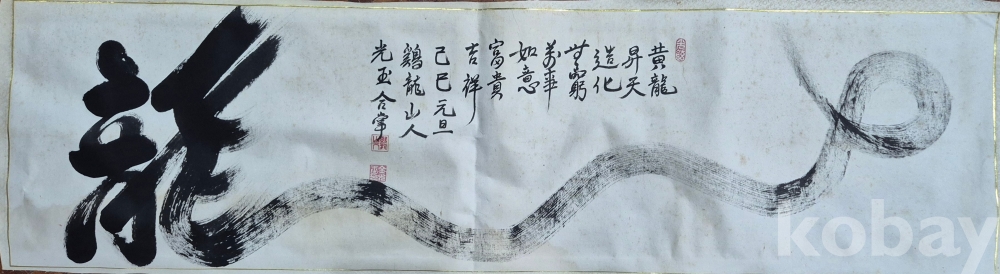 黃龍
昇天
造化
無窮
萬華
如意
富貴
吉祥
己巳元旦
鷄龍山人
光玉合掌
龍
kobay